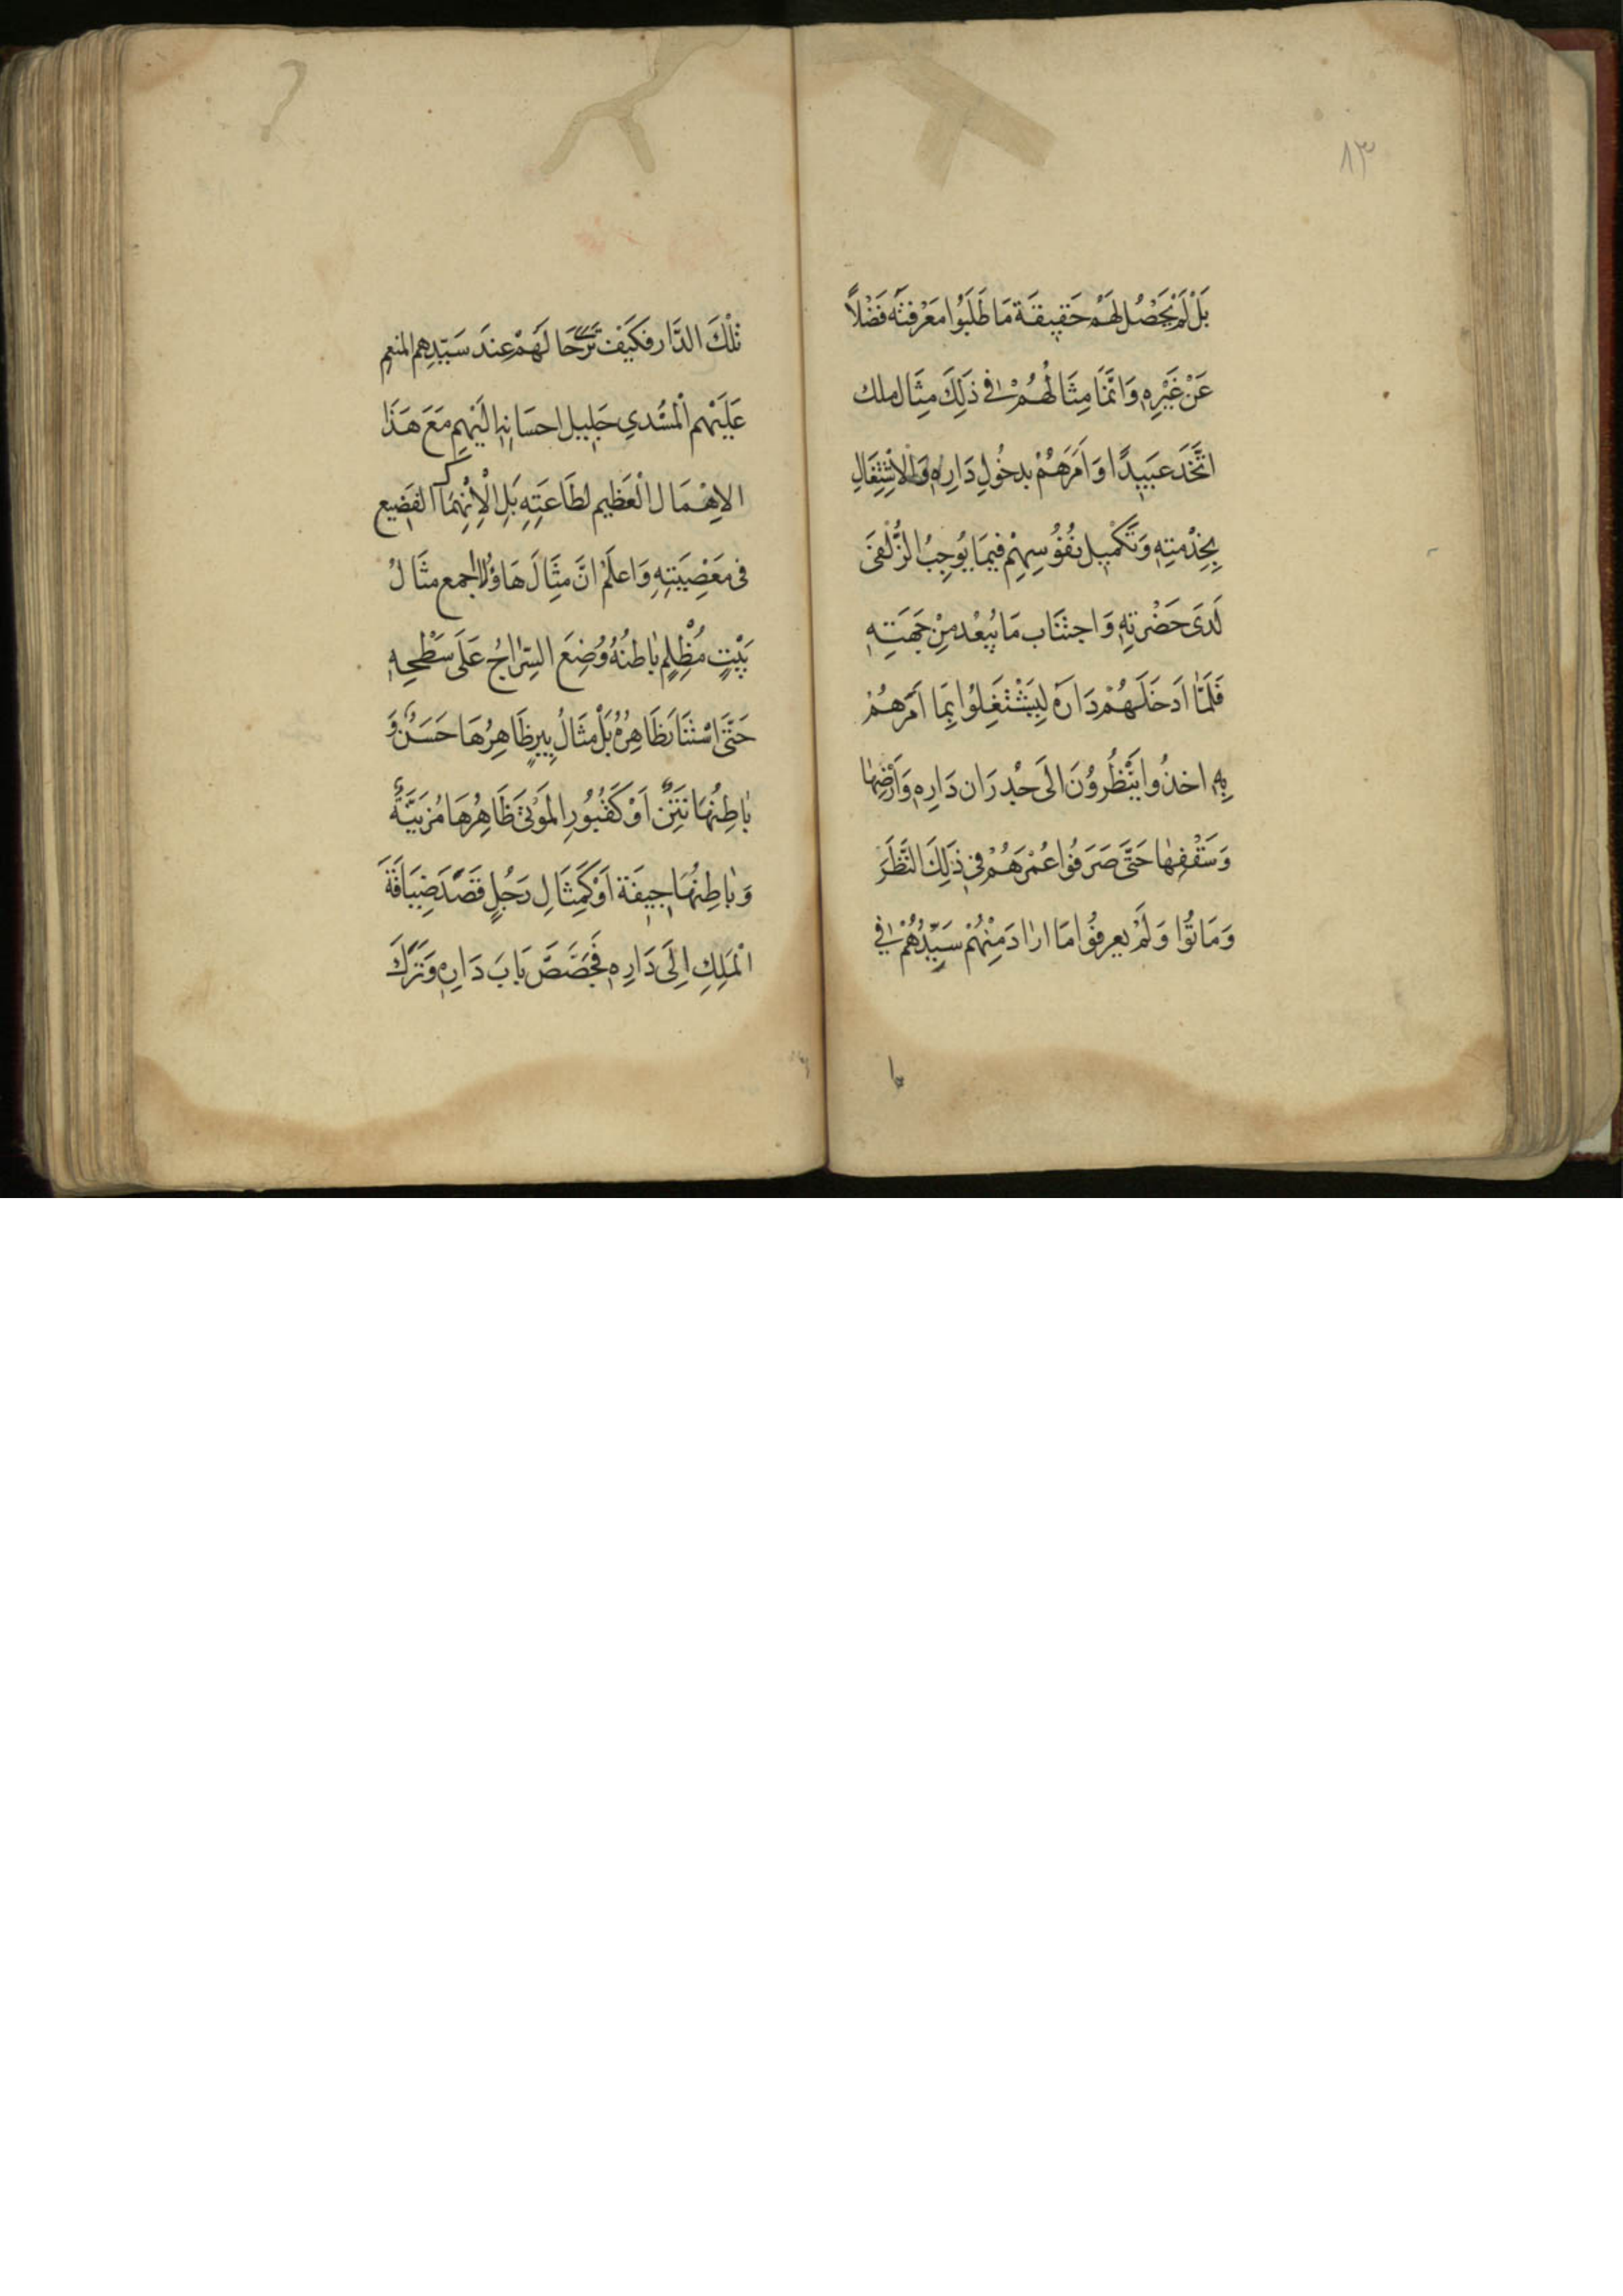 ٨٣
بَلْ لَمْ يَحْصُلْ لَهُمْ حَقِيقَة مَا طَلَبُوا مَعْرِفَتَهُ فَضْلاً
عَنْ غَيْرِهِ وَانَّمَا مِثَالُهُمْ فِي ذَلِكَ مِثَال ملك
اتَّخَذَ عَبَيدًا وَاَمَرَهُمْ بدخُولِ دَارِهِ وَالْاِشْتِغَالِ
بِخِدْمَتِهِ وَتَكْمْيل نُفُوُسِهِمْ فيمَا يُوجِبُ الزُّلْفىَ
لَدَى حَضْرَتِهِ وَاجتنَاب مَا يُبعْد مِنْ جَهَتِهِ
فَلَمَّا اَدخَلَهُمْ دَارَهُ لِيَشْتَغِلُوا بِمَا اَمَرَهُمْ
بِهِ اخذُوا يَنْظُروُنَ الَى جُدرَان دَارِهِ وَاَرْضِهَا
وَسَقْفِهَا حَتَّى صَرَفُوا عُمْرَهُمْ فِى ذَلِكَ النَّظَرَ
وَمَاتُوا وَلَمْ يعرفُوا مَا ارَادَ مِنْهُمْ سَيِّدُهُمْ فِي
تلْكَ الدَّار فكَيَفْ تَرَى حَالَهُمْ عِندَ سَيِّدِهِم المنعِمِ
عَلَيْهِم الْمسُدي جَليِل احسَانِهِ الَيْهِم مَعَ هَذَا
الاِهْمَال الْعَظِيم لطَاعَتِهِ بَلِ الْاِنْهِمَاك الفَضيع
فى مَعْصِيَتِهِ وَاعلَمْ انَّ مِثَالَ هَاؤُلا اجمع مثَالُ
بَيْتٍ مُظْلِمٍ بَاطنُهُ وُضِعَ السِّرَاجُ عَلَى سَطْحِهِ
حَتَّى اسْتنَارَ ظَاهِرُهُ بَلْ مثَالُ بِيرٍ ظَاهِرُهَا حَسَنٌ وَ
بَاطِنُهَا نَتِنٌ اَوْ كَقُبُورِ المَوْتى ظَاهِرُهَا مُزَيَّنَةٌ
وَبَاطِنُهَا جِيفَة اَوْ كَمِثَالِ رَجُلٍ قَصَدَ ضِيَافَةَ
الْمَلِكِ اِلَى دَارِهِ فَجَصَّصَ بَابَ دَارِهِ وَتَرَكَ